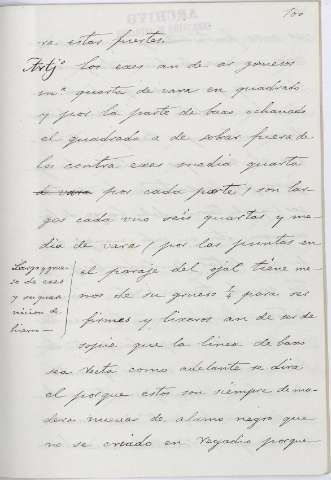 100
ARCHIVO
ra estar fuertes.
Artjo Los exes an de ser gruesos
ma quarta de vara en quadrado
y por la parte de baxo ochavado
el quadrado a de sobar fuera de
los contra exes media quarta
de vara por cada parte / son lar-
gos cada uno seis quartas y me-
dia de vara / por las puntas en
el paraje del ojal tiene me-
nos de su grueso ¼ para ser
firmes y lixeros an de ser de
suque que la linea de baxo
sea recta como adelante se dira
el porque estos son siempre de ma-
dera nueva de alamo negro que
no se criado en regadio porque
Largo y grue-
so de exes
y su guar
nicion de
hierro —